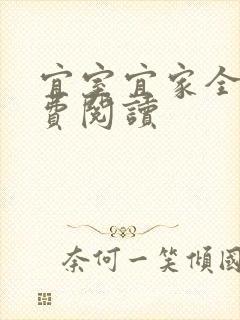 宜室宜家全
費閱讀
奈何一笑傾國